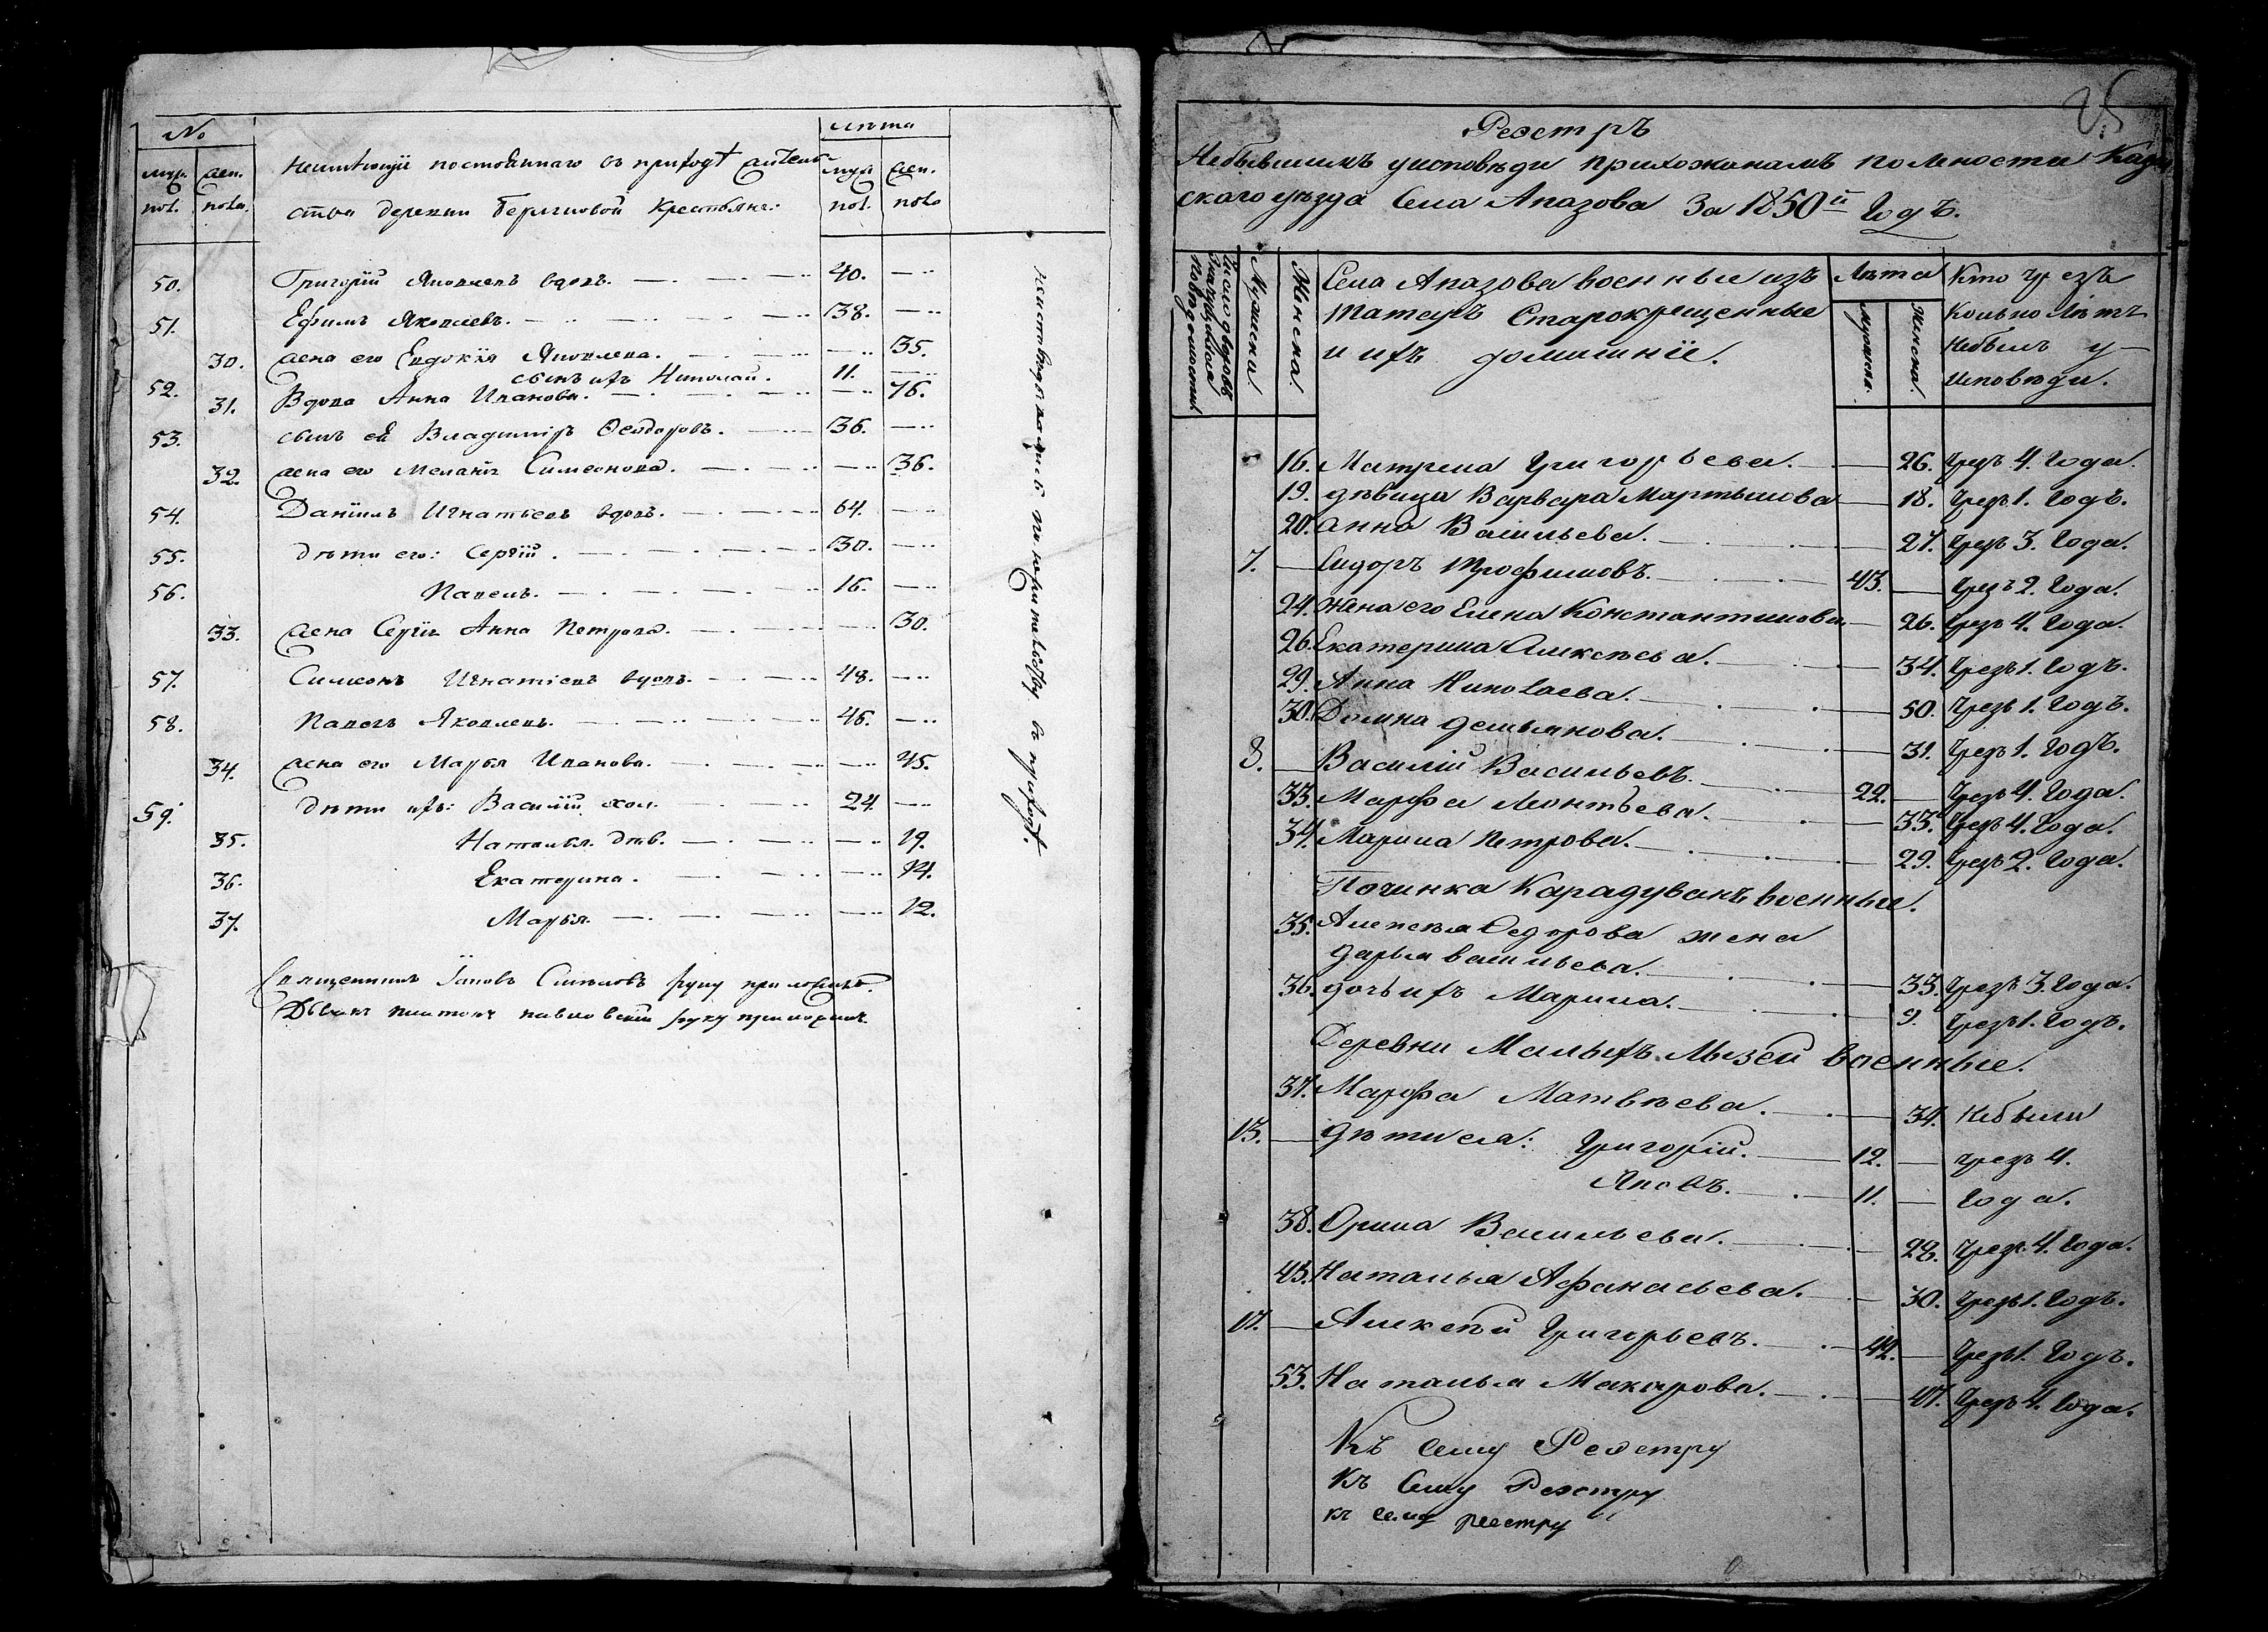 №
муж. пол.
жен. пола.
Неимѣющiи постояннаго въ приходѣ житель-
ства деревни Крестьяне:
лѣта
муж. пол.
жен. пола
50. Григорiй Яковлевъ вдовъ. 40.
51. Ефимъ Яковлевъ. 38.
30. жена его Евдокiя Яковлева. 35.
52. сынъ ихъ Николай. 11.
31. Вдова Анна Иванова. 76.
53. сынъ ея Владимiръ Ѳеодоровъ. 36.
32. жена его Меланiя Симеонова. 36.
54. Данiилъ Игнатьевъ вдовъ. 64.
55. дѣти его: Сергiй. 30.
56. Павелъ. 16.
33. жена Сергiя Анна Петрова. 30.
57. Симеонъ Игнатiевъ вдовъ. 48.
58. Павелъ Яковлевъ. 46.
34. жена его Марья Иванова. 45.
59. дѣти ихъ: Василiй хол. 24
35. Наталья дѣв. 19.
36. Екатерина. 14.
37. Марья. 12.
Священникъ Iаковъ руку приложилъ.
Дьяконъ Платонъ руку приложилъ
въ приходѣ.
25
Реэстръ
Небывшимъ уисповѣди прихожанамъ помяности Казан
скаго уѣзда Села Апазова За 1850й Годъ.
Число дворовъ
значущихся
повѣдомостямъ
Мужеска.
Женска.
Села Апазова военные изъ
татаръ Старокрещенные
и ихъ домашнiе.
Лѣта
мужеска.
Женска.
Кто чрезъ
Колько Лѣтъ
Небылъ у-
Исповѣди.
16. Матрена Григорьева. 26. Чрезъ 4. Года.
19. дѣвица Варвара Мартынова 18. Чрезъ 1. Годъ.
20. анна Васильева. 27. Чрезъ 3. Года.
7. Сидоръ Трофимовъ. 43. Чрезъ 2. Года.
24. Жена его Елена Константинова. 26. Чрезъ 4. Года.
26. Екатерина Алексѣева. 34. Чрезъ 1. Годъ.
29. Анна Николаева. 50. Чрезъ 1. Годъ.
30. Домна демьянова. 31. Чрезъ 1. Годъ.
8. Василiй Васильевъ. 22. Чрезъ 4. Года.
33. Марфа Леонтьева. 33. Чрезъ 4. Года.
34. Марина Петрова. 29. Чрезъ 2. Года.
Починка Карадуванъ военные.
35. Алексѣя Ѳедорова жена
дарья васильева. 33. Чрезъ 3. Года.
36. дочь ихъ Марина. 9. Чрезъ 1. Годъ.
Деревни Малыхъ Лызей военные.
37. Марфа Матвѣева. 34. Небыли
13. дѣти ея: Григорiй. 12. чрезъ 4.
Яковъ. 11. Года.
38. Орина Васильева. 28. Чрезъ 4. Года.
43. Наталья Афанасьева. 30. Чрезъ 1. Годъ.
17. Алексѣй Григорьевъ. 42. Чрезъ 1. Годъ.
53. Наталья Макарова. 47. Чрезъ 4. Года.
Къ Сему Реэстру
Къ Сему Реэстру
къ сему реестру